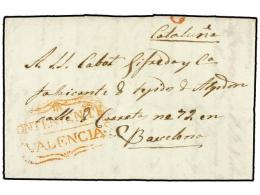 Cataluña
A. D. Cabot Gifreda y Ca
fabricante de tejido de Algodon
calle d Carreta nº 72 en
Barcelona
ONTENIENTE
VALENCIA